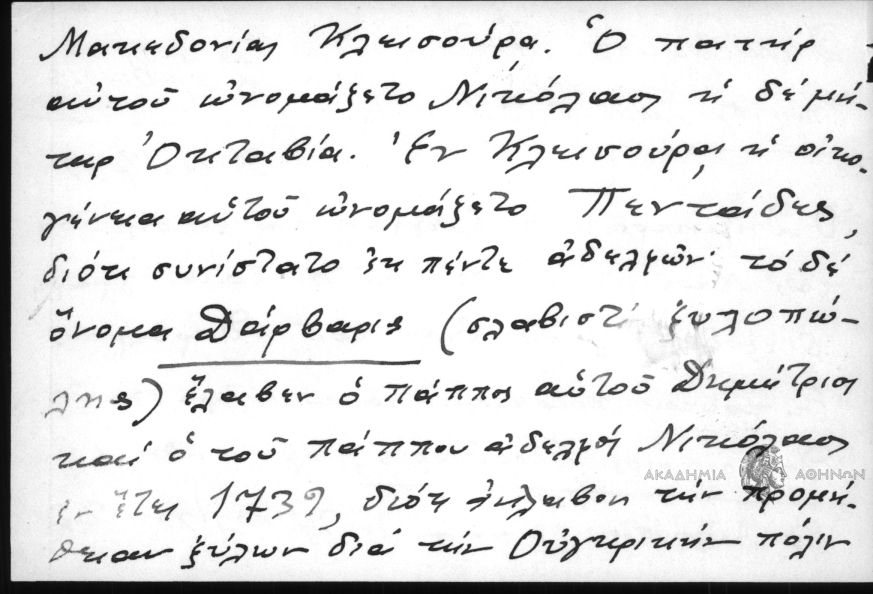 Μακεδονίας Κλεισούρα. Ὁ πατήρ
αὐτοῦ ὠνομάζετο Νικόλαος ἡ δέ μή-
τηρ Ὀκταβία. Ἐν Κλεισούρᾳ ἡ οἰκο-
γένεια αὐτοῦ ὠνομάζετο Πενταίδες,
διότι συνίστατο ἐκ πέντε ἀδελφῶν· τό δέ
ὄνομα Δάρβαρις (σλαβιστί ξυλοπώ-
λης) ἔλαβεν ὁ πάππος αὐτοῦ Δημήτριος
καί ὁ τοῦ πάππου ἀδελφός Νικόλαος
ἐν ἔτει 1739, διότι ἀνέλαβον τήν προμή-
θειαν ξύλων διά τήν Οὐγκρικήν πόλιν
ΑΚΑΔΗΜΙΑ ΑΘΗΝΩΝ